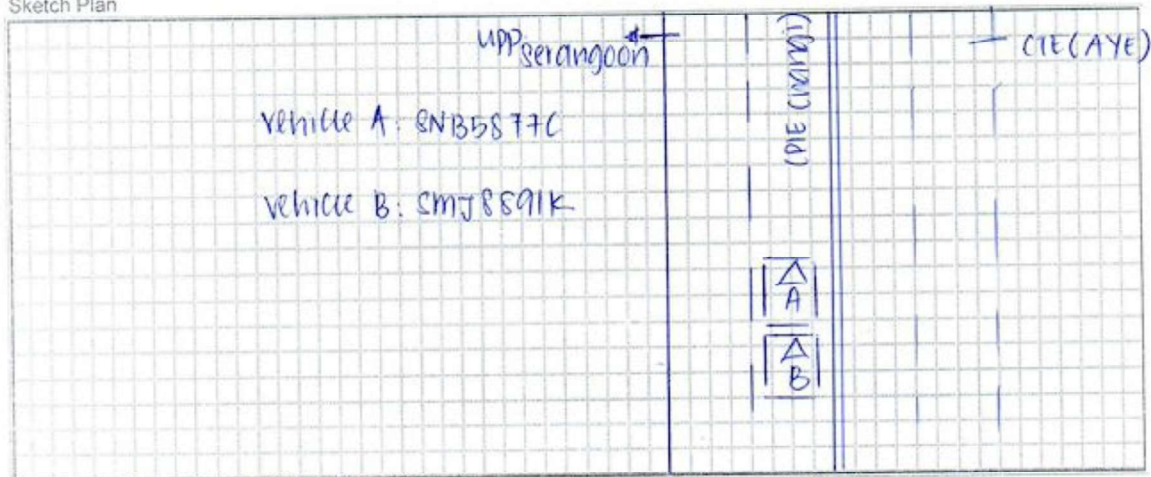 Sketch Plan
UPP serangoon
CTE (AYE)
PIE (Changi)
vehicle A: SNB5877C
vehicle B: SMJ8891K
A
B